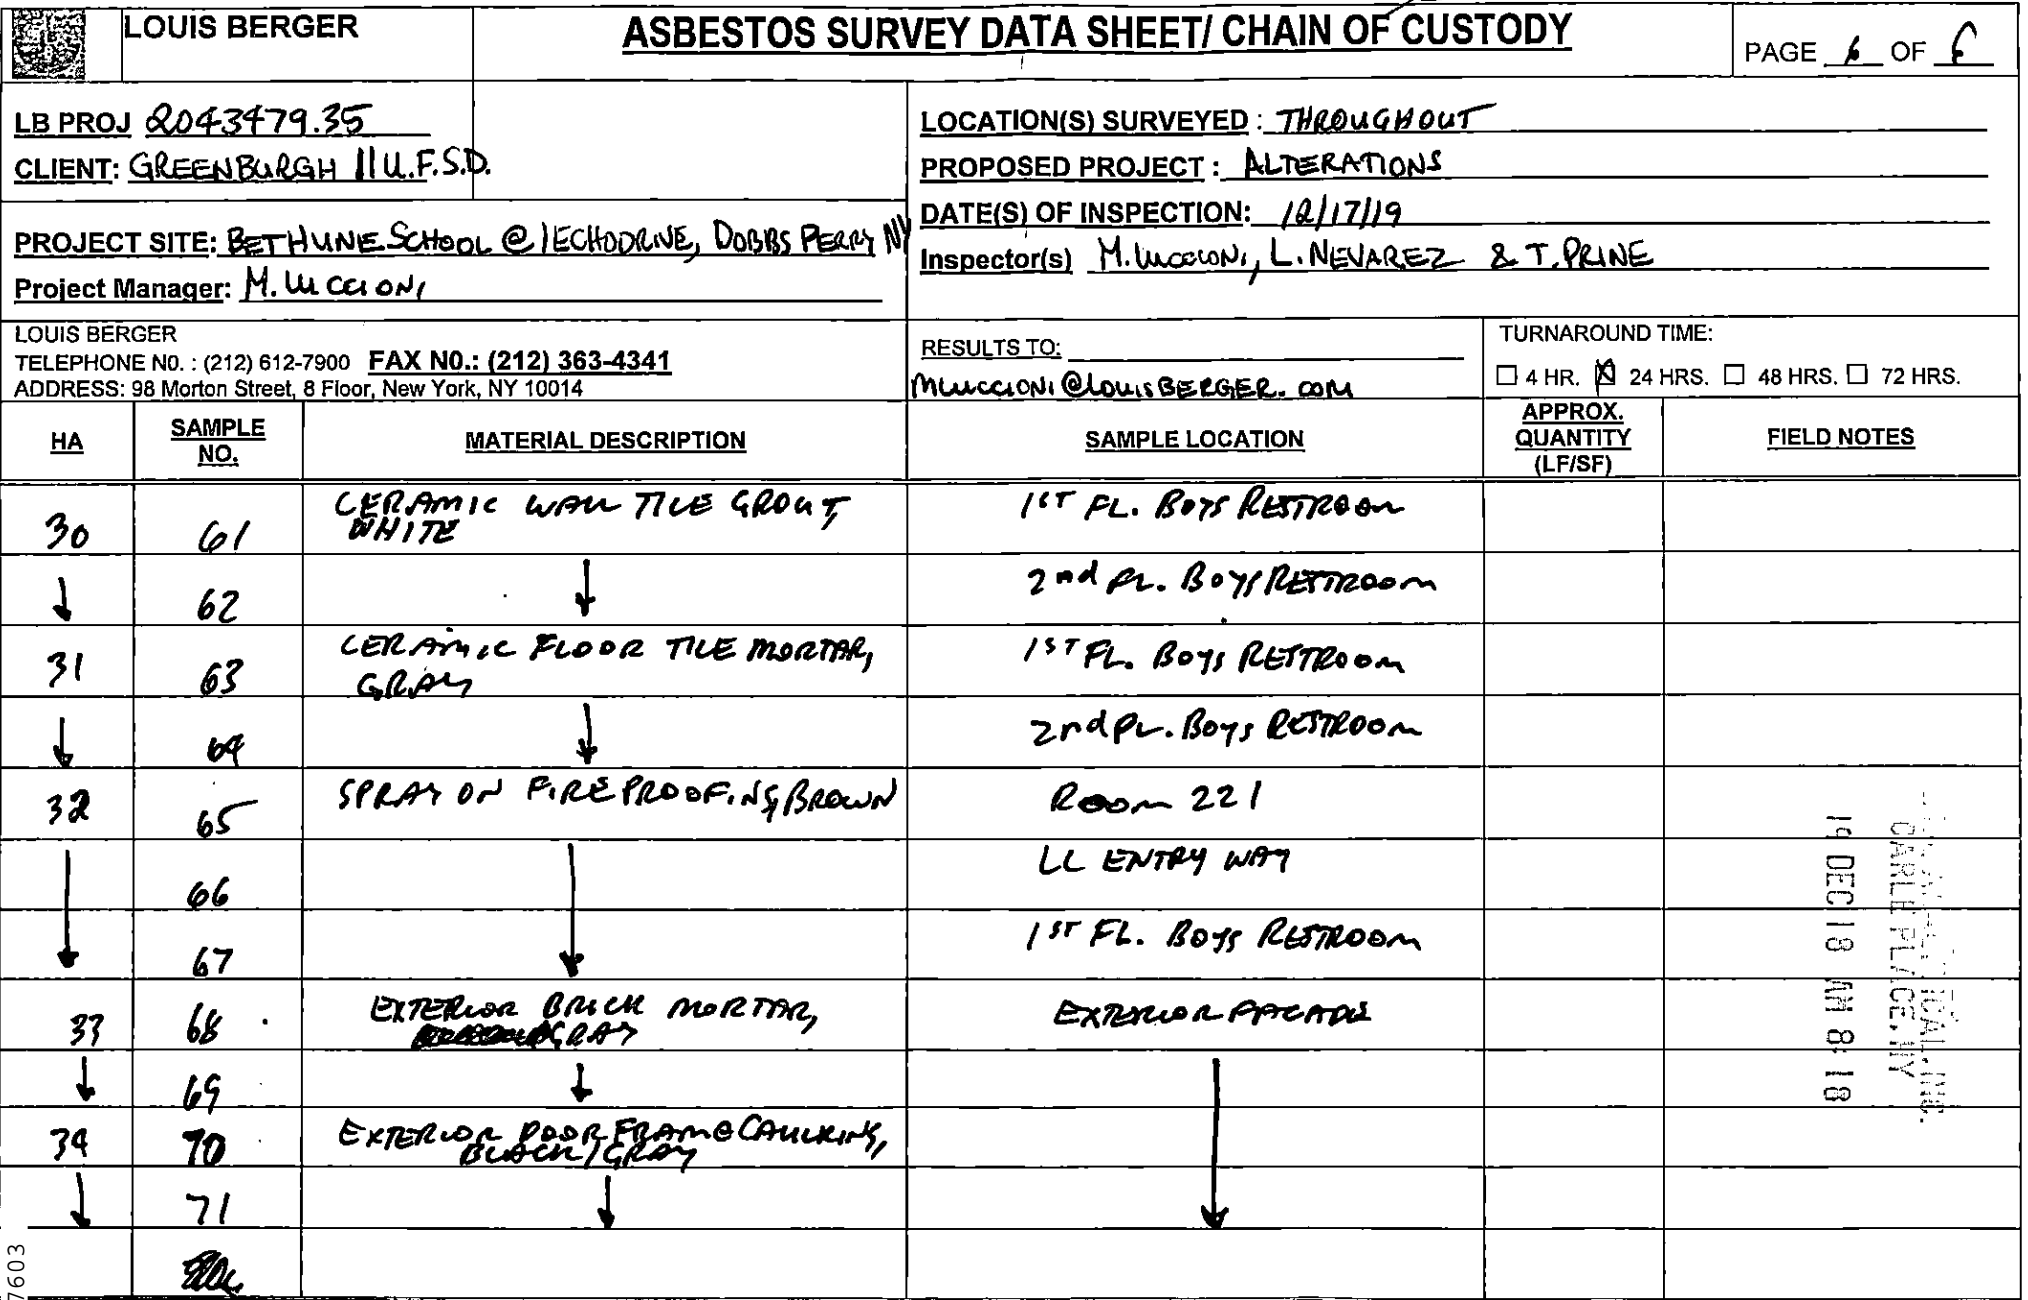 LOUIS BERGER
ASBESTOS SURVEY DATA SHEET/ CHAIN OF CUSTODY
PAGE 6 OF 6
LB PROJ 2043479.35
CLIENT: GREENBURGH 11 U.F.S.D.
PROJECT SITE: BETHUNE SCHOOL @ 1 ECHO DRIVE, DOBBS FERRY NY
Project Manager: M. LUCCIONI
LOCATION(S) SURVEYED : THROUGHOUT
PROPOSED PROJECT : ALTERATIONS
DATE(S) OF INSPECTION: 12/17/19
Inspector(s) M. LUCCIONI, L. NEVAREZ & T. PRINE
LOUIS BERGER
TELEPHONE NO. : (212) 612-7900 FAX NO.: (212) 363-4341
ADDRESS: 98 Morton Street, 8 Floor, New York, NY 10014
RESULTS TO:
MLUCCIONI@LOUISBERGER.COM
TURNAROUND TIME:
☐ 4 HR. ☒ 24 HRS. ☐ 48 HRS. ☐ 72 HRS.
HA
SAMPLE NO.
MATERIAL DESCRIPTION
SAMPLE LOCATION
APPROX. QUANTITY (LF/SF)
FIELD NOTES
30 61 CERAMIC WALL TILE GROUT, WHITE 1ST FL. BOYS RESTROOM
↓ 62 ↓ 2nd FL. BOYS RESTROOM
31 63 CERAMIC FLOOR TILE MORTAR, GRAY 1ST FL. BOYS RESTROOM
↓ 64 ↓ 2nd FL. BOYS RESTROOM
32 65 SPRAY ON FIREPROOFING, BROWN ROOM 221
66 LL ENTRY WAY
↓ 67 ↓ 1ST FL. BOYS RESTROOM
33 68 EXTERIOR BRICK MORTAR, GRAY EXTERIOR FACADE
↓ 69 ↓
34 70 EXTERIOR DOOR FRAME CAULKING, BLACK/GRAY
↓ 71 ↓ ↓
CARLE PLACE, NY
19 DEC 18 AM 8:18
7603